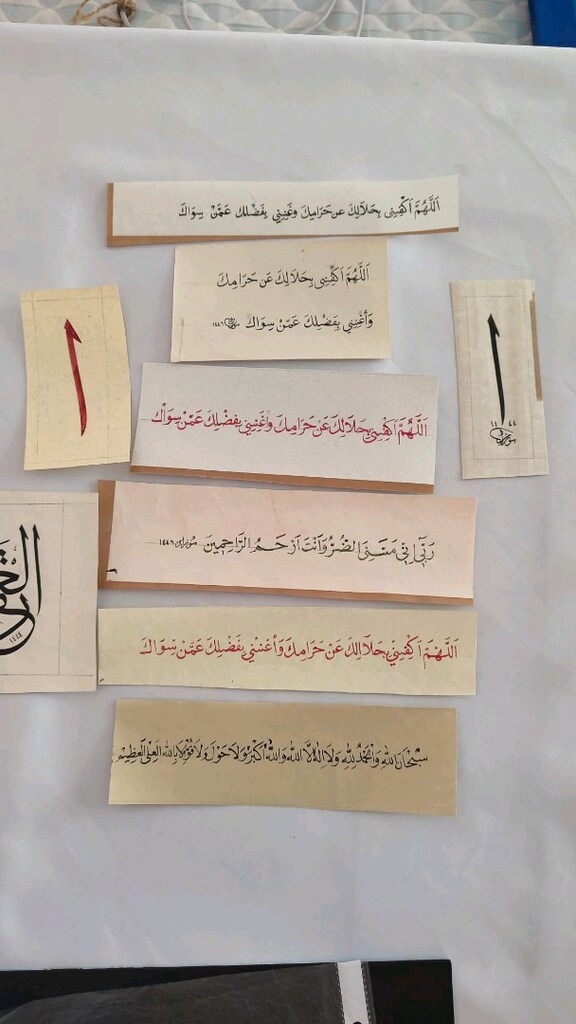 اَللَّهُمَّ اَكْفِنِى بِحَلَالِكَ عن حَرَامِكَ وغَنِنِي بِفَضْلِكَ عَمَّنْ سِوَاكَ
اَللَّهُمَّ اَكْفِنِى بِحَلَالِكَ عَنْ حَرَامِكَ
وَأَغْنِنِي بِفَضْلِكَ عَمَّنْ سِوَاكَ ١٤٤٦
ا
ا
١٤ ٤٤
اَللَّهُمَّ اَكْفِنِي بِحَلَالِكَ عَنْ حَرَامِكَ وَاغْنِنِي بِفَضْلِكَ عَمَّنْ سِوَاكَ
رَبِّى إِنِّي مَسَّنِىَ الضُّرُّ وَاَنْتَ اَرْحَمُ الرَّاحِمِينَ ١٤٤٦
اَللَّهُمَّ اَكْفِنِي بِحَلَالِكَ عَنْ حَرَامِكَ وَأَغْنِنْي بِفَضْلِكَ عَمَّنْ سِوَاكَ
سُبْحَانَ اللهِ وَالْحَمْدُ لِلهِ وَلَا اِلٰهَ اِلَّا اللهُ وَاللهُ اَكْبَرُ وَلَا حَوْلَ وَلَا قُوَّةَ اِلَّا بِاللهِ الْعَلِىِّ الْعَظِيمِ